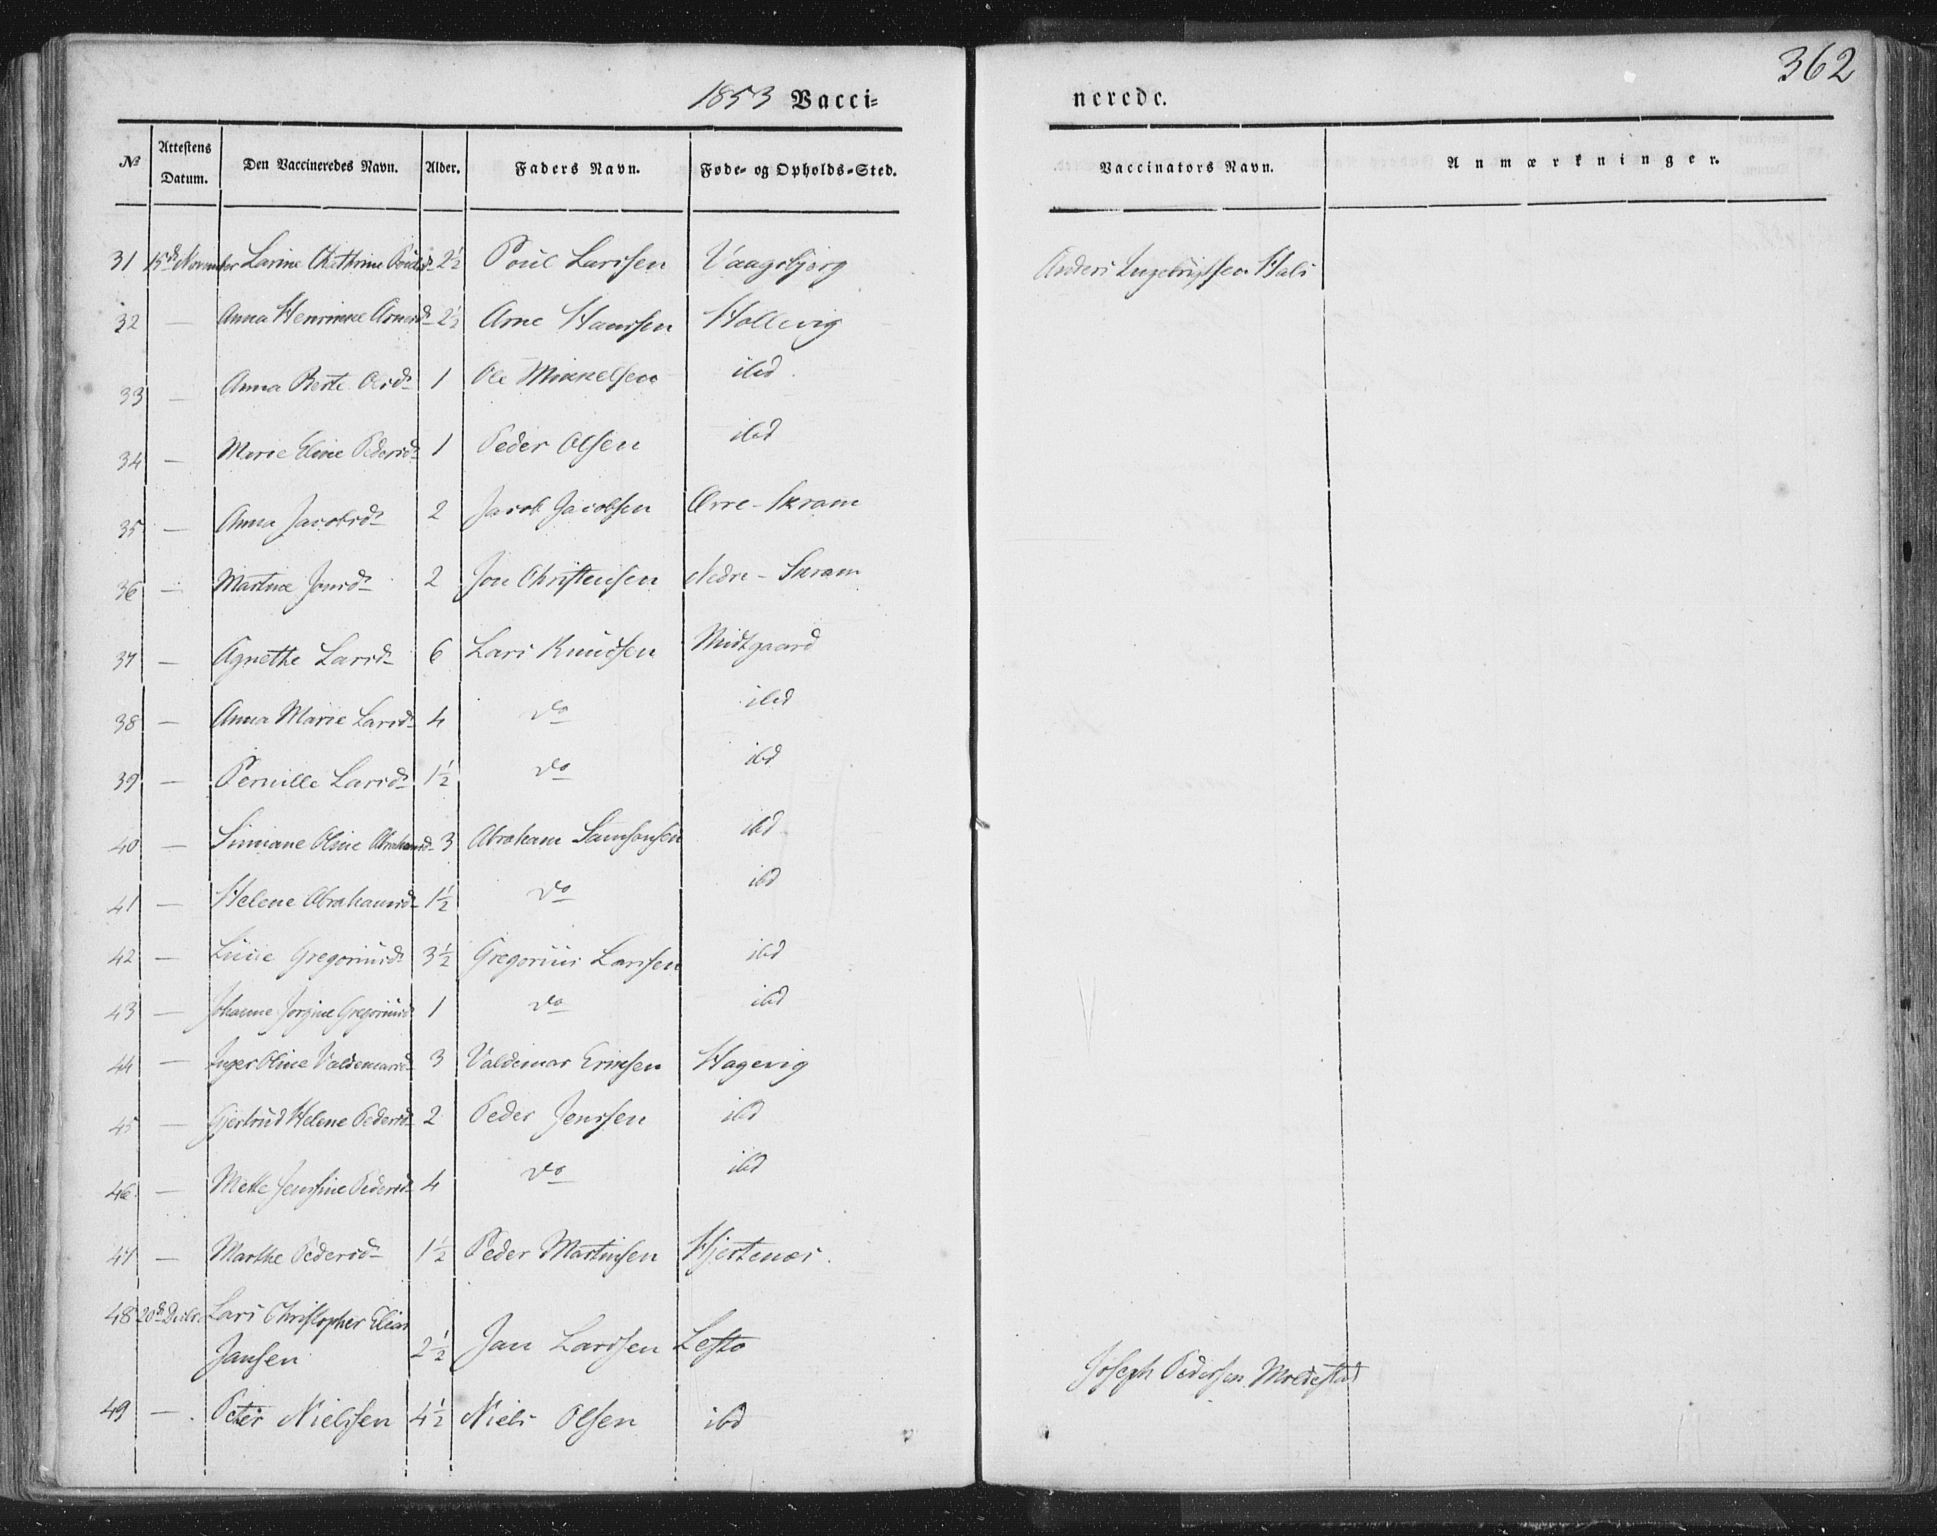 362
1853 Vacci=
nerede.
№ Attestens Datum. Den Vaccineredes Navn. Alder. Faders Navn. Føde- og Opholds-Sted. Vaccinators Navn. Anmærkninger.
31 15de November Larine Cathrine Poulsd: 2½ Poul Larssen Vaagsbjerg Anders Ingebrigtsen Hals
32 — Anna Henrikke Arnesd: 2½ Arne Hanssen Hollevig
33 — Anna Berte Olsd: 1 Ole Mikkelsen ibd.
34 — Marie Eline Pedersd: 1 Peder Olsen ibd
35 — Anna Jacobsd: 2 Jacob Jacobsen Øvre-Skram
36 — Martine Jonsd: 2 Jon Christensen Nedre-Skram
37 — Agnethe Larsd: 6 Lars Knudsen Midtgaard
38 — Anna Marie Larsd: 4 do ibd
39 — Pernille Larsd: 1½ do ibd
40 — Simiane Oline Abrahamsd: 3 Abraham Samsonsen ibd
41 — Helene Abrahamsd: 1½ do ibd
42 — Gregoriusd: 3½ Gregorius Larssen ibd
43 — Johanne Jorgine Gregoriusd: 1 do ibd
44 — Inger Oline Valdemarsd: 3 Valdemar Eriksen Hagevig
45 — Gjertrud Helene Pedersd: 2 Peder Jenssen ibd
46 — Mette Jenssine Pedersd: 4 do ibd
47 — Marthe Pedersd: 1½ Peder Martinsen Hjertenæs.
48 20de Decbr. Lars Christopher Elias
Jansen 2½ Jan Larssen Lefto Joseph Pedersen Moldestad
49 — Peter Nielssen 4½ Niels Olsen ibd